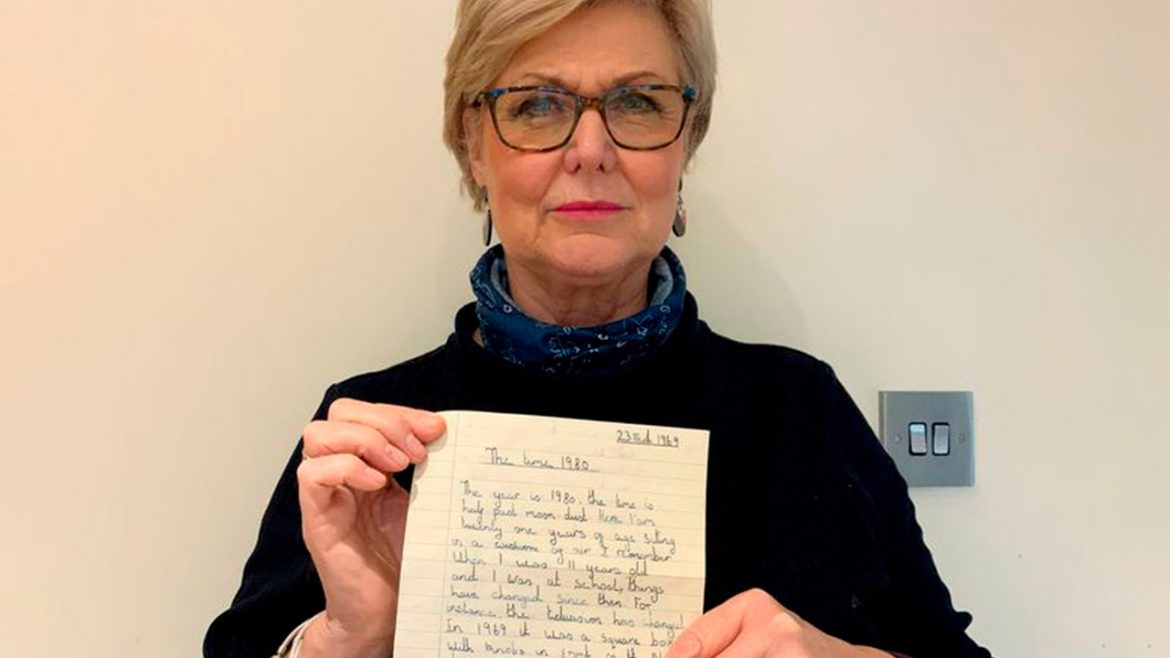 23 Feb 1969
The time 1980
The year is 1980. the time is
half past moon-dust Here I am
twenty one years of age siting
in a cushion of air I remember
When I was 11 years old
and I was at school, things
have changed since then. For
instance the television has changed
In 1969 it was a square box
with knobs in front